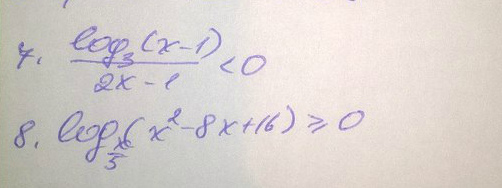 7. log₃(x-1)/(2x-1) < 0
8. log_(x/5)(x²-8x+16) ≥ 0